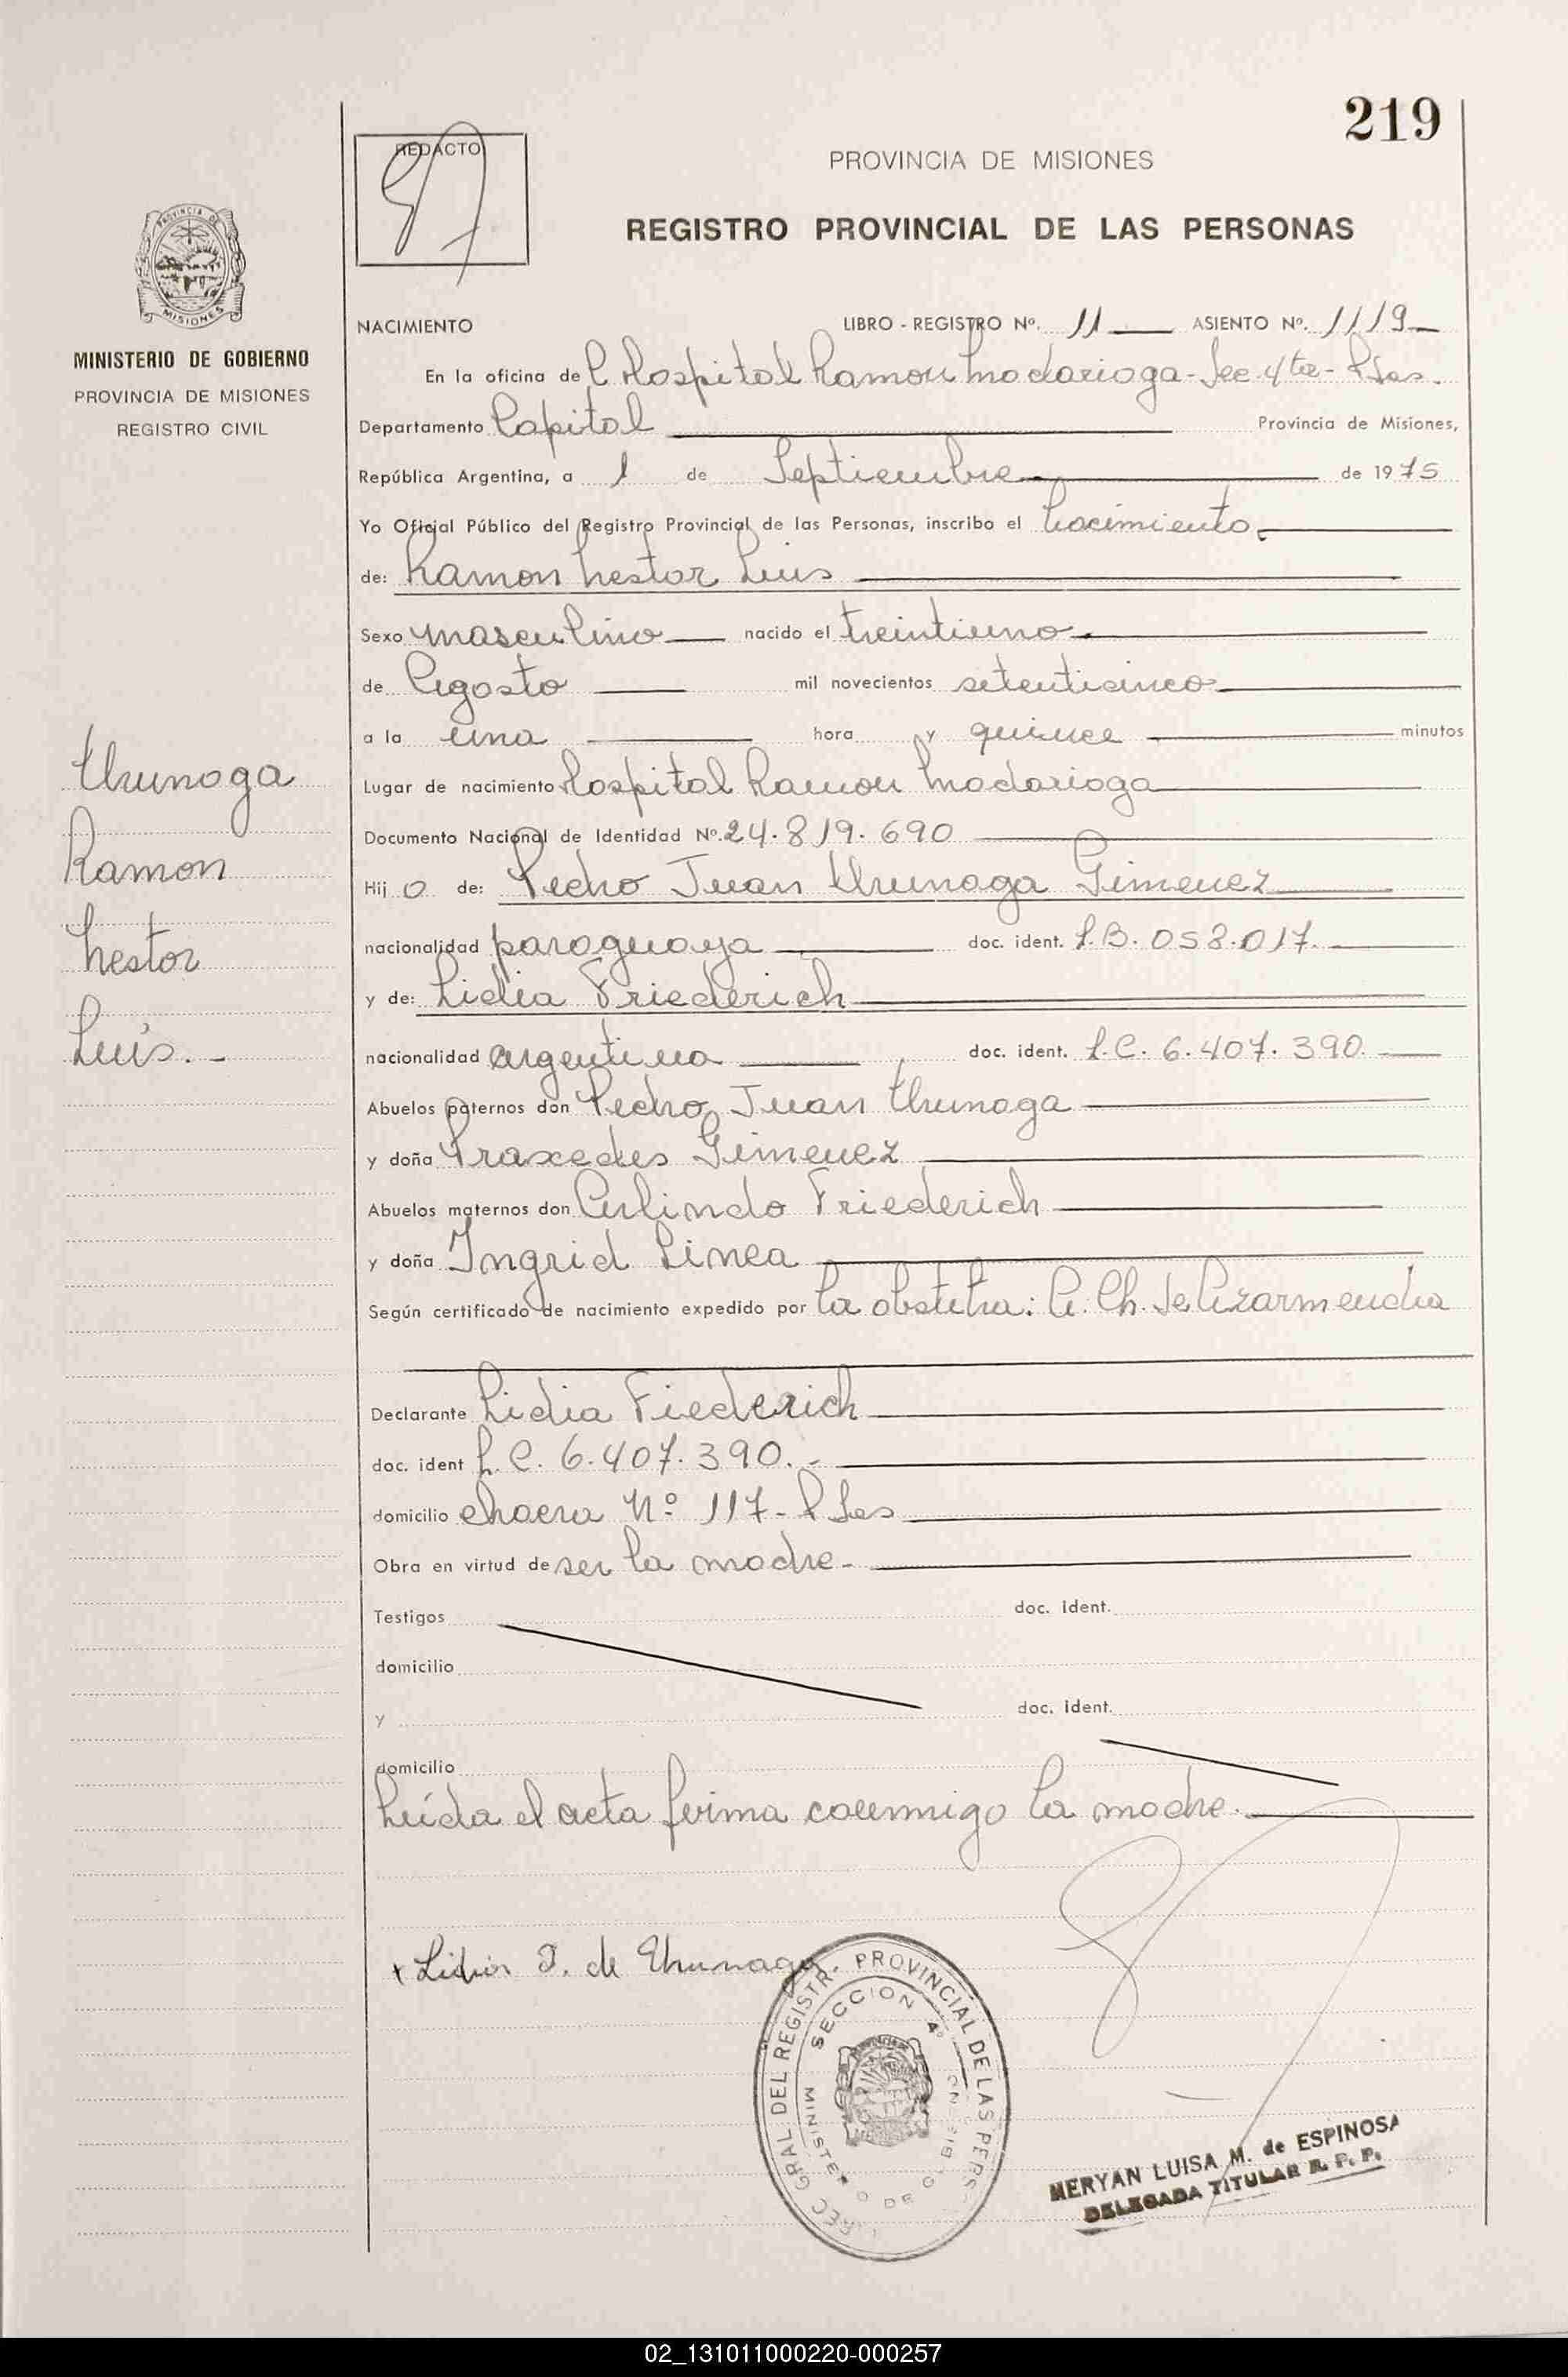 219
REDACTO
PROVINCIA DE MISIONES
REGISTRO PROVINCIAL DE LAS PERSONAS
PROVINCIA DE
MISIONES
MINISTERIO DE GOBIERNO
PROVINCIA DE MISIONES
REGISTRO CIVIL
NACIMIENTO LIBRO - REGISTRO Nº. 11 ASIENTO Nº. 1119
En la oficina del Hospital Ramon Madariaga - Sec 4ta - Psas.
Departamento Capital Provincia de Misiones,
República Argentina, a 1 de Septiembre de 1975
Yo Oficial Público del Registro Provincial de las Personas, inscribo el nacimiento
de: Ramon Nestor Luis
Sexo masculino nacido el treintiuno
de Agosto mil novecientos setenticinco
a la una hora y quince minutos
Lugar de nacimiento Hospital Ramon Madariaga
Documento Nacional de Identidad Nº. 24.819.690
Hijo de: Pedro Juan Chunaga Gimenez
nacionalidad paraguaya doc. ident. P.B. 058.017.
y de: Lidia Friederich
nacionalidad argentina doc. ident. L.C. 6.407.390.
Abuelos paternos don Pedro Juan Chunaga
y doña Praxedes Gimenez
Abuelos maternos don Arlindo Friederich
y doña Ingrid Linea
Según certificado de nacimiento expedido por la obstetra: A. Ch. de Lizarmendia
Declarante Lidia Fiederich
doc. ident L.C. 6.407.390.-
domicilio chacra Nº 117 - Psas
Obra en virtud de ser la madre-
Testigos doc. ident.
domicilio
y doc. ident.
domicilio
Leída el acta firma conmigo la madre.
Chunaga
Ramon
Nestor
Luis.-
x Lidia F. de Chunaga
DEL REGISTR. PROVINCIAL DE LAS PERS
SECCION 4ª
MINISTERIO DE GOBIERNO
MERYAN LUISA M. de ESPINOSA
DELEGADA TITULAR R. P. P.
02_131011000220-000257